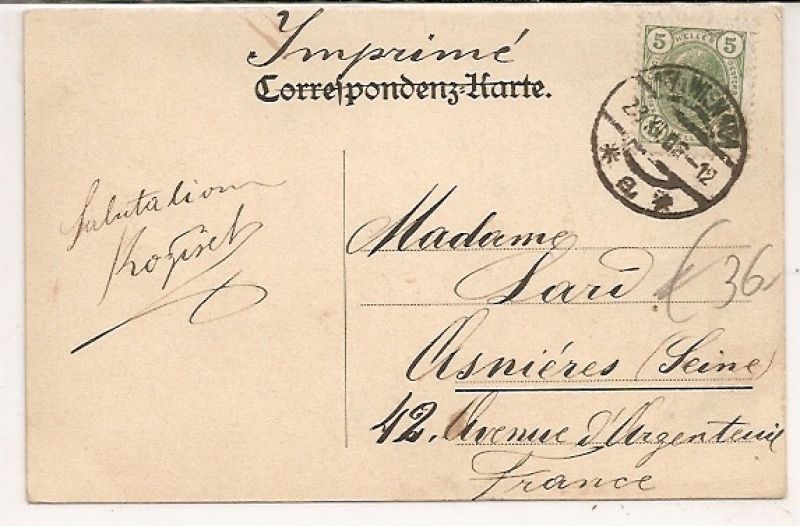 Imprimé
Correspondenz-Karte.
5 HELLER 5
Salutations
Madame
Sari
Asniéres (Seine)
42, Avenue d'Argenteuil
France
36